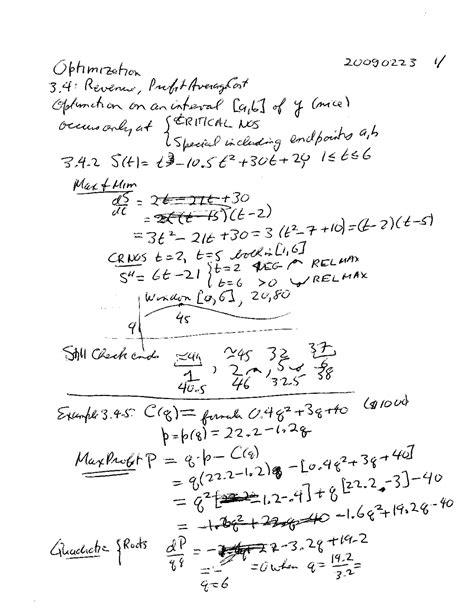 Optimization 20090223 1/
3.4: Revenue, Profit, Average Cost
Optimization on an interval [a,b] of y (nice)
occurs only at { CRITICAL NOS
Special including endpoints a,b
3.4-2 S(t) = t3 - 10.5t² + 30t + 24 1≤t≤6
Max & Min
dS/dt = 2t - 21t + 30
= (t-2)
= 3t² - 21t + 30 = 3(t²-7+10) = (t-2)(t-5)
CR NOS t=2, t=5 both in [1,6]
S" = 6t - 21 { t=2 NEG RELMAX
t=6 >0 RELMAX
Window [0,6], 20,80
9 45
Still Check ends ≃49 ≃45 32 37
1, 2, 5, 6
40.5 46 32.5 38
Example 3.4-5: C(q) = formula 0.4q² + 3q + 40 ($1000)
p = p(q) = 22.2 - 1.2q
Max Profit P = q·p - C(q)
= q(22.2-1.2)q - [0.4q² + 3q + 40]
= q²[-1.2-.4] + q[22.2-3] - 40
= -1.6q² + 22q - 40 -1.6q² + 19.2q - 40
Quadratic { Roots dP/qq = -3.2q + 19.2
= 0 when q = 19.2/3.2 =
q = 6